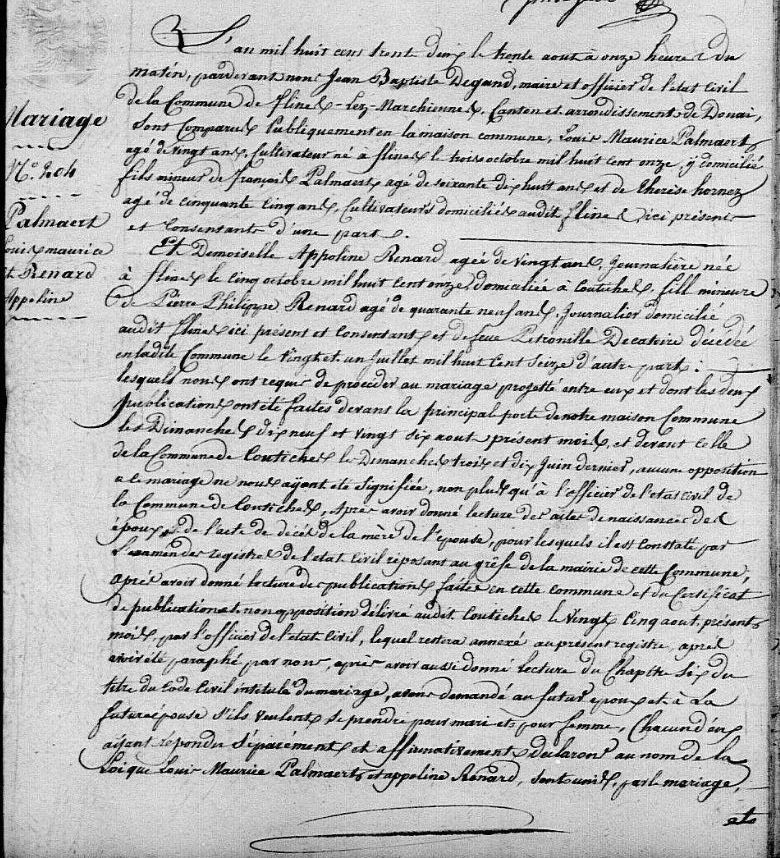 L'an mil huit cent trent deux le trente aout à onze heures du
matin, pardevant nous Jean Baptiste Degand, maire et officier de l'etat Civil
de la Commune de flines-Lez-Marchiennes, Canton et arrondissement de Douai,
Sont Comparus Publiquement en la maison commune, Louis Maurice Palmaert,
agé de vingt ans, Cultivateur né à flines le trois octobre mil huit cent onze, y domicilié
fils mineur de françois Palmaert agé de soixante dix huit ans et de thérèse hornez
agée de cinquante cinq ans, Cultivateurs domiciliés audit flines ici présents
et Consentants d'une part.
Et Demoiselle Appoline Renard agée de vingt ans, Journalière née
à flines le cinq octobre mil huit cent onze, domiciliée à Coutiches, fille mineure
de Pierre Philippe Renard agé de quarante neuf ans, Journalier domicilié
audit flines ici présent et Consentant, et de feue Petronille Decatoire décédée
en ladite Commune le vingt et un Juillet mil huit cent seize d'autre part :
lesquels nous ont requis de procéder au mariage projetté entre eux et dont les deux
publications ont été faites devant la principal porte de notre maison Commune
les Dimanches dix neuf et vingt six aout présent mois, et devant Celle
de la Commune de Coutiches le Dimanches trois et dix Juin dernier, aucune opposition
a le mariage ne nous aÿant été signifiée, non plus qu'à l'officier de l'etat Civil de
la Commune de Coutiches, Après avoir donné lecture des actes de naissances des
époux, de l'acte de décès de la mère de l'épouse, pour lesquels il est Constaté par
L'examen des registres de l'etat Civil reposant au grêfe de la mairie de cette Commune,
après avoir donné lecture des publications faites en cette commune et du Certificat
de publication et non opposition délivré audit Coutiches le Vingt Cinq aout, présent
mois, par l'officier de l'état Civil, lequel restera annexé au présent registre, après
avoir été paraphé par nous, après avoir aussi donné lecture du Chapitre Six du
titre du Code Civil intitulé du mariage, avons demandé au futur epoux et à La
future épouse S'ils veulent se prendre pour mari et pour femme, Chacun d'eux
aÿant répondu Séparément et affirmativement Declarons au nom de la
Loi que Louis Maurice Palmaert et appoline Renard, sont unis, par le mariage,
etc
Mariage
N.º 204
Palmaert
Louis maurice
et Renard
Appoline